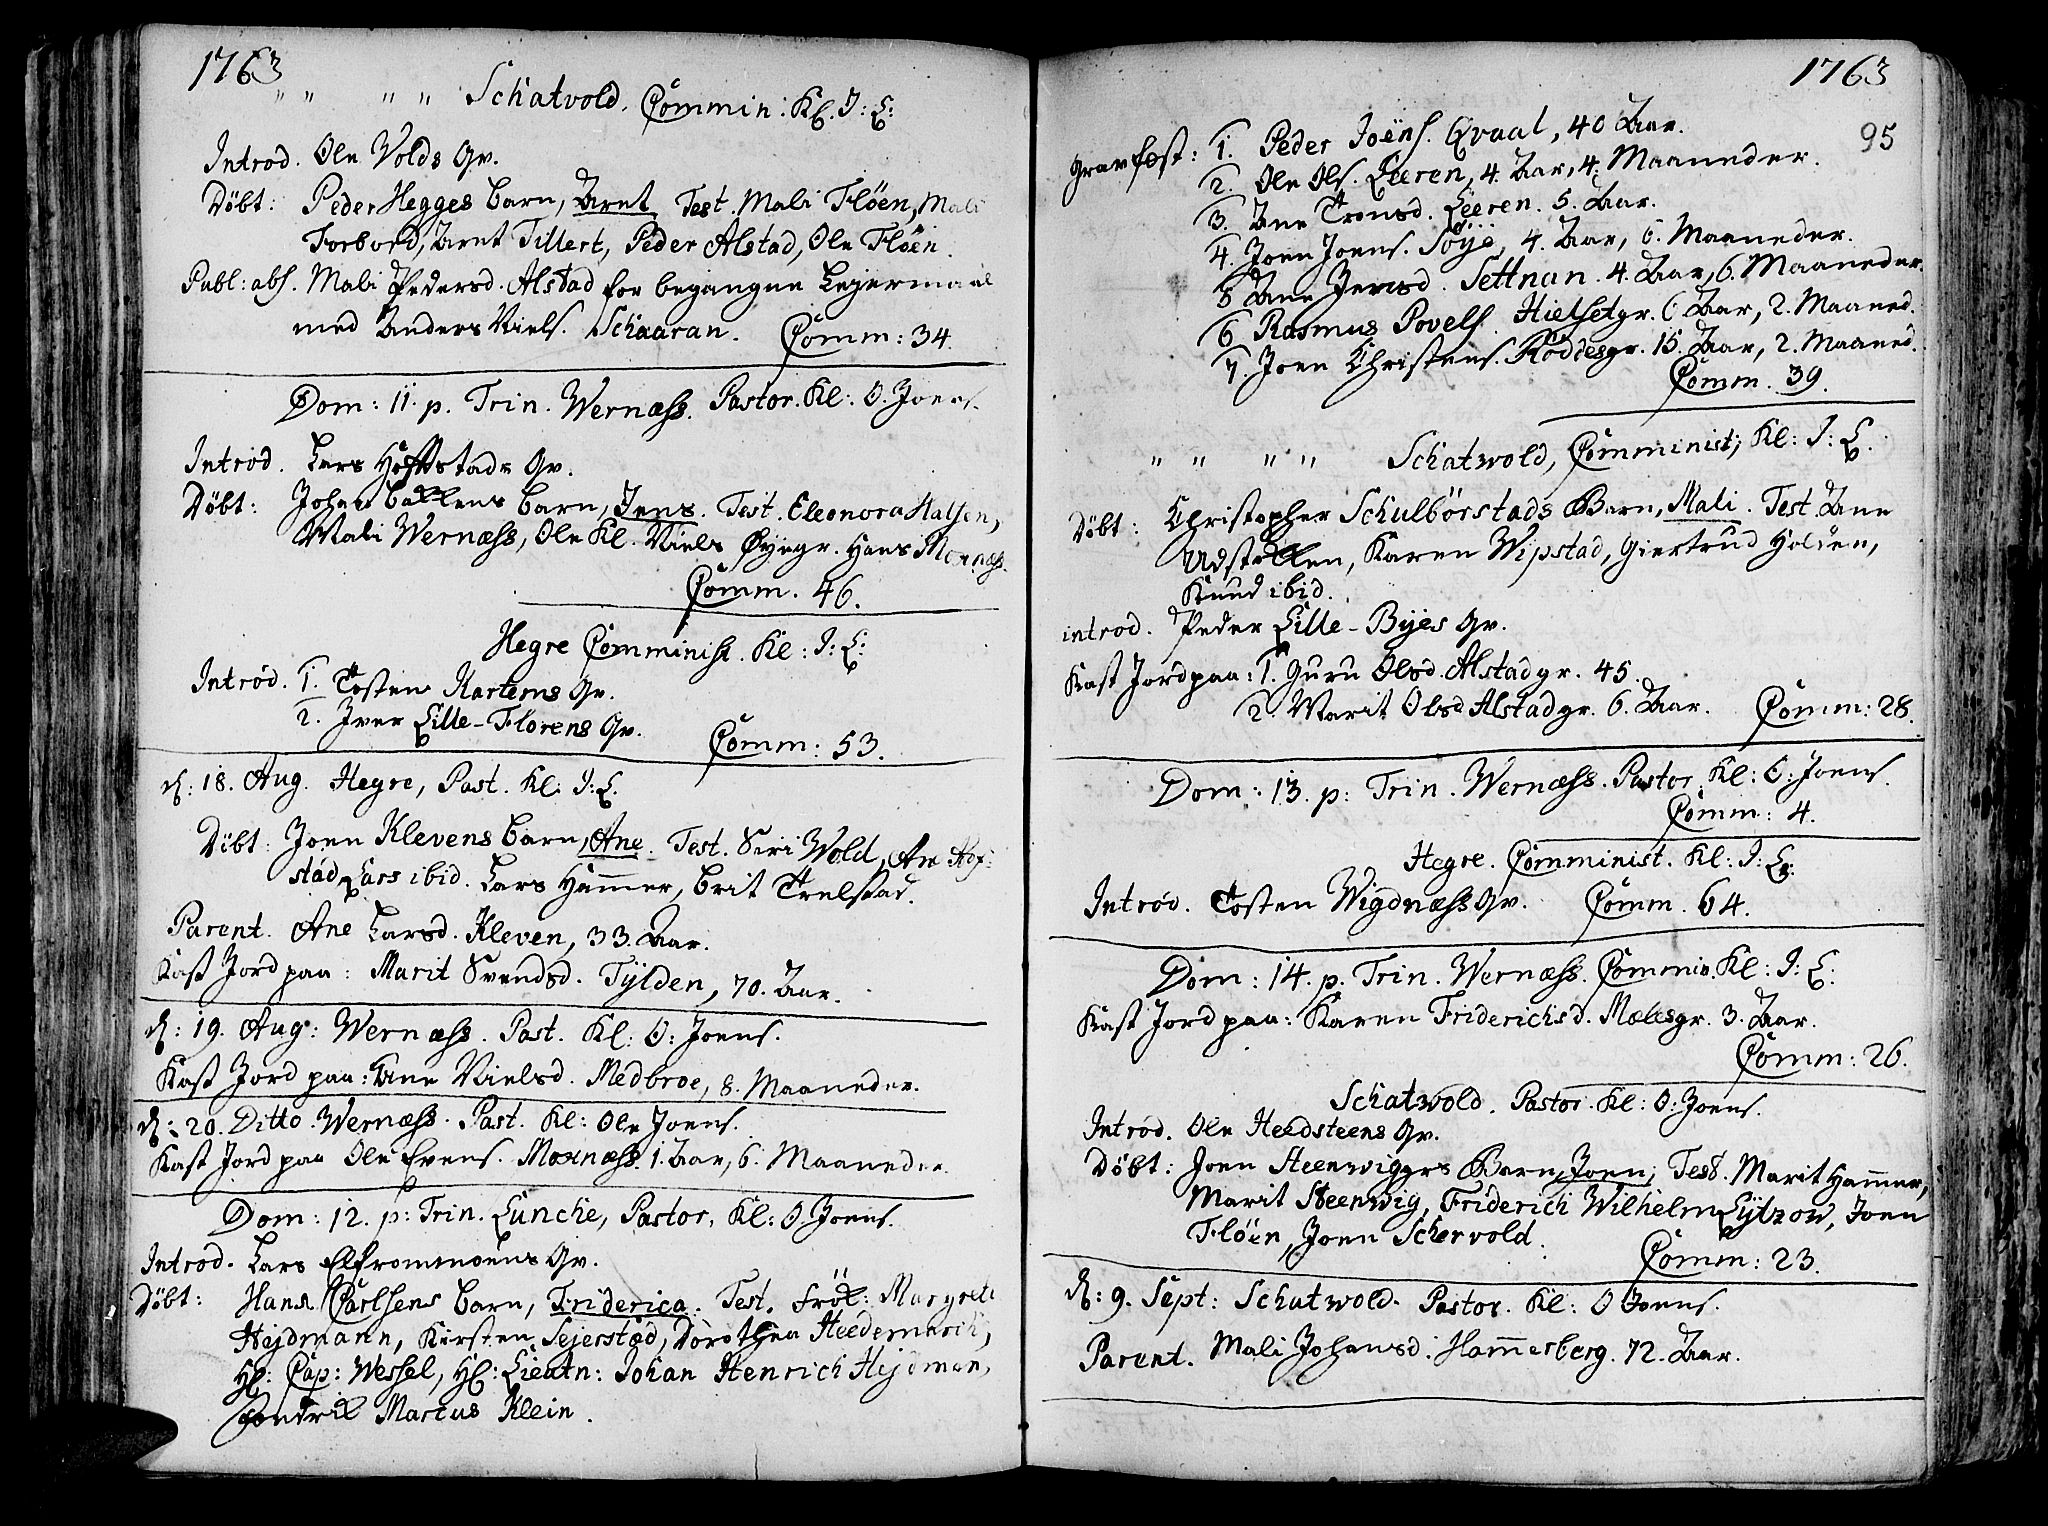 1763
" " " " Schatvold. Commin: Kl. I: L:
Introd. Ole Volds Qv.
Døbt: Peder Hegges barn, Arnt Test. Mali Fløen, Mali
Forbord, Arnt Tillert, Peder Alstad, Ole Fløen.
Publ: abs. Mali Pedersd. Alstad for begangne Lejermaal
med Anders Niels. Schaaran. Comm: 34.
Dom: 11. p. Trin. Wernæss. Pastor. Kl: O. Joens.
Introd. Lars Hoffstads Qv.
Døbt: Johan barn, Jens. Test. Eleonora Halsen,
Mali Wernæss, Ole Kl. Niels Øyegr. Hans Moxnæss.
Comm. 46.
Hegre Comminist. Kl: I: L:
Introd. 1. Tosten Kartems Qv.
2. Iver Lille-Florens Qv.
Comm: 53.
d: 18. Aug. Hegre, Past. Kl: I: L.
Døbt: Joen Klevens barn, Ane. Test. Siri Wold, Ane Hof-
stad Lars ibid. Lars Hammer, Brit Trelstad.
Parent. Ane Larsd. Kleven, 33. Aar.
Kast Jord paa: Marit Svendsd. Tylden, 70. Aar.
d: 19. Aug: Wernæss. Past. Kl: O: Joens.
Kast Jord paa: Ane Nielsd. Medbroe, 8. Maaneder.
d: 20. Ditto. Wernæss. Past. Kl: Ole Joens.
Kast Jord paa Ole Evens. Moxnæss. 1. Aar, 6. Maaneder.
Dom: 12. p: Trin. Lunche, Pastor, Kl: O. Joens.
Introd. Lars Elfrommoens Qv.
Døbt: Hans Carlsens barn, Friderica. Test. Frøl: Margrete
Hejdmann, Kirsten Sejerstad, Dorothea Heedemarck,
Hl: Cap: Wessel, Hl: Lieutn: Johan Henrich Hejdman,
Marcus Klein.
1763
95
Gravfæst: 1. Peder Joens. Qvaal, 40 Aar.
2. Ole Ols. Leeren, 4. Aar, 4. Maaneder.
3. Ane Tronsd. Leeren. 5. Aar.
4. Joen Joens. Søye, 4. Aar, 6. Maaneder.
5 Ane Jensd. Settnan. 4. Aar, 6. Maaneder.
6 Rasmus Povels. Hielsetgr. 6 Aar, 2. Maaned.
7. Joen Christens. Røddesgr. 15. Aar, 2. Maaned.
Comm. 39.
" " " " Schatwold, Comminist, Kl: I: L.
Døbt: Christopher Schulbørstads Barn, Mali. Test. Ane
Udstollen, Karen Wipstad, Giertrud Holden,
Knud ibid.
introd. Peder Lille-Byes Qv.
Kast Jord paa: 1. Guru Olsd. Alstadgr. 45.
2. Marit Olsd Alstadgr. 6. Aar. Comm: 28.
Dom: 13. p: Trin. Wernæss. Pastor. Kl: O: Joens.
Comm: 4.
Hegre. Comminist. Kl: I: L:
Introd. Tosten Wigdnæss Qv. Comm. 64.
Dom: 14. p. Trin. Wernæss. Commin. Kl: I: L:
Kast Jord paa: Karen Friderichsd. Mælesgr. 3. Aar.
Comm: 26.
Schatwold. Pastor. Kl: O: Joens.
Introd. Ole Heedsteens Qv.
Døbt: Joen Steenwiggrs Barn, Joen, Test. Marit Hammer,
Marit Steenwig, Friderich Wilhelm Lytzow, Joen
Fløen, Joen Schervold.
Comm: 23.
d: 9. Sept: Schatwold. Pastor. Kl: O Joens.
Parent. Mali Johansd. Hammerberg. 72. Aar.